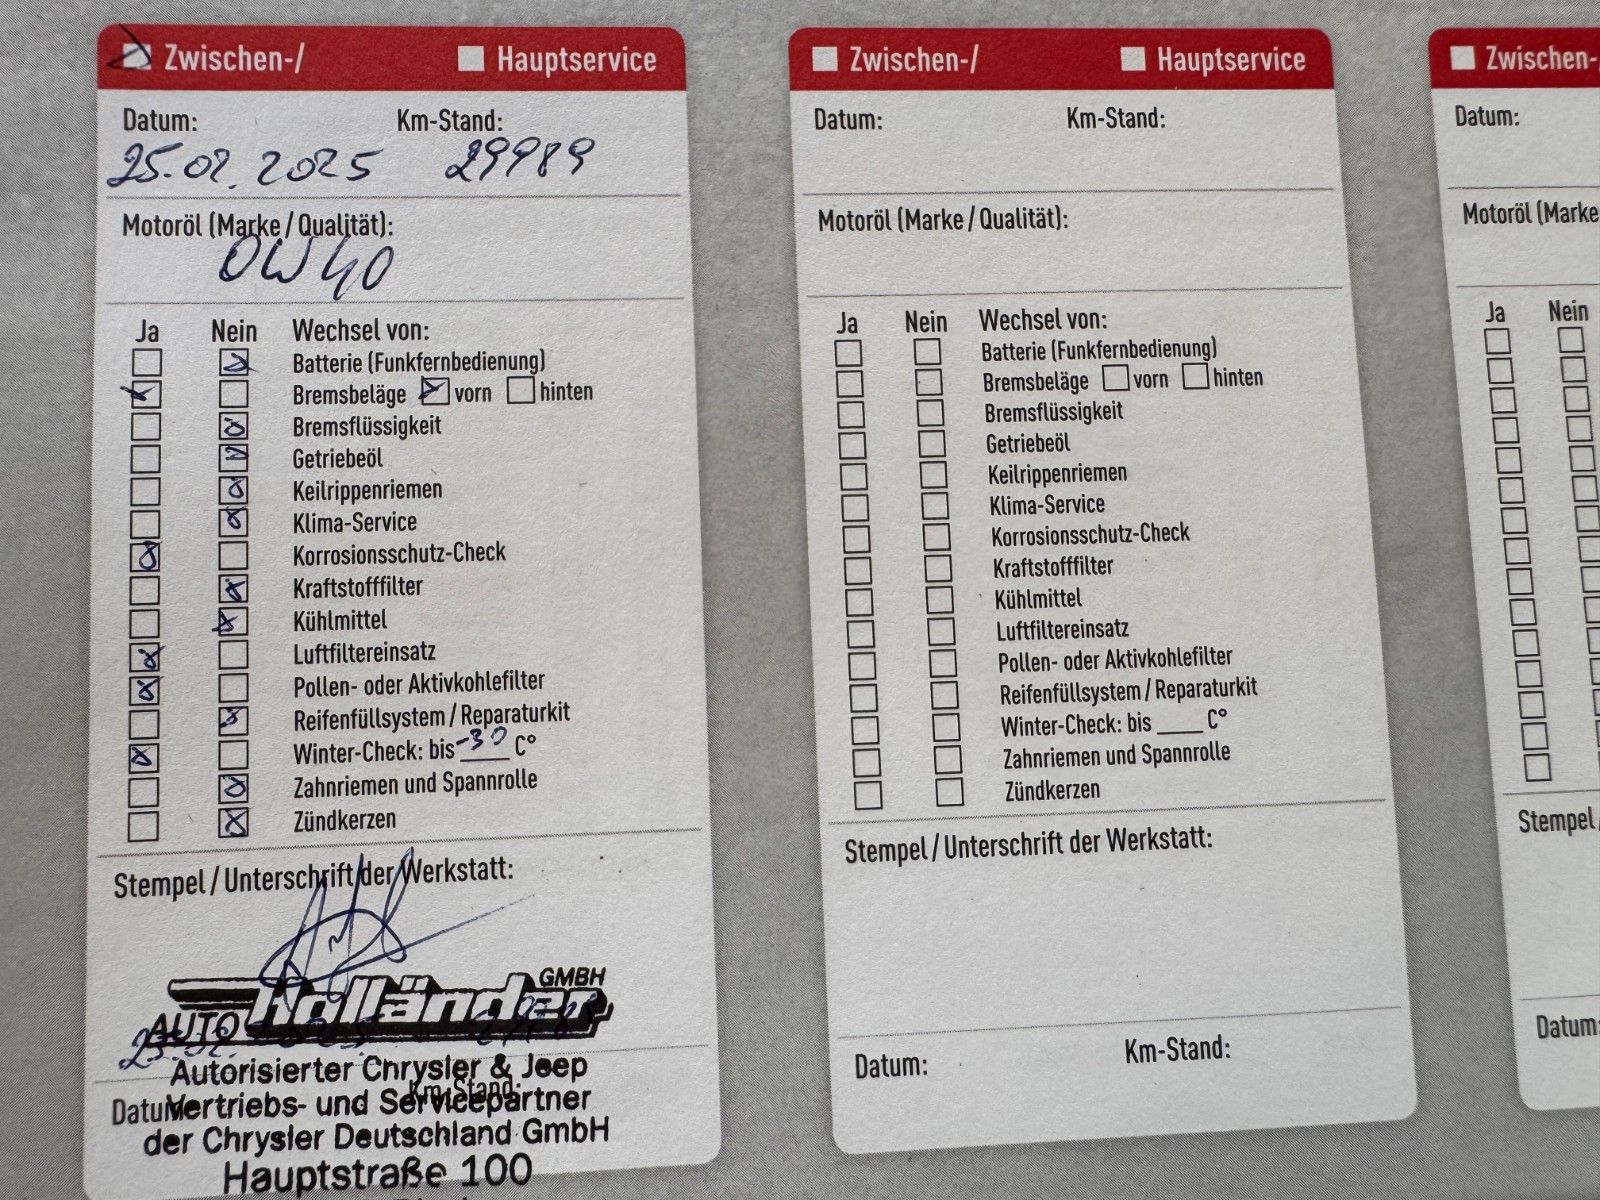 Zwischen-/ Hauptservice
Datum: Km-Stand:
25.02.2025 29989
Motoröl (Marke / Qualität):
0W40
Ja Nein Wechsel von:
Batterie (Funkfernbedienung)
Bremsbeläge vorn hinten
Bremsflüssigkeit
Getriebeöl
Keilrippenriemen
Klima-Service
Korrosionsschutz-Check
Kraftstofffilter
Kühlmittel
Luftfiltereinsatz
Pollen- oder Aktivkohlefilter
Reifenfüllsystem / Reparaturkit
Winter-Check: bis -30 C°
Zahnriemen und Spannrolle
Zündkerzen
Stempel / Unterschrift der Werkstatt:
AUTO Holländer GMBH
Autorisierter Chrysler & Jeep
Datum: Km-Stand:
Vertriebs- und Servicepartner
der Chrysler Deutschland GmbH
Hauptstraße 100
Zwischen-/ Hauptservice
Datum: Km-Stand:
Motoröl (Marke / Qualität):
Ja Nein Wechsel von:
Batterie (Funkfernbedienung)
Bremsbeläge vorn hinten
Bremsflüssigkeit
Getriebeöl
Keilrippenriemen
Klima-Service
Korrosionsschutz-Check
Kraftstofffilter
Kühlmittel
Luftfiltereinsatz
Pollen- oder Aktivkohlefilter
Reifenfüllsystem / Reparaturkit
Winter-Check: bis ____ C°
Zahnriemen und Spannrolle
Zündkerzen
Stempel / Unterschrift der Werkstatt:
Datum: Km-Stand:
Zwischen-/
Datum:
Motoröl (Marke
Ja Nein
Stempel /
Datum: